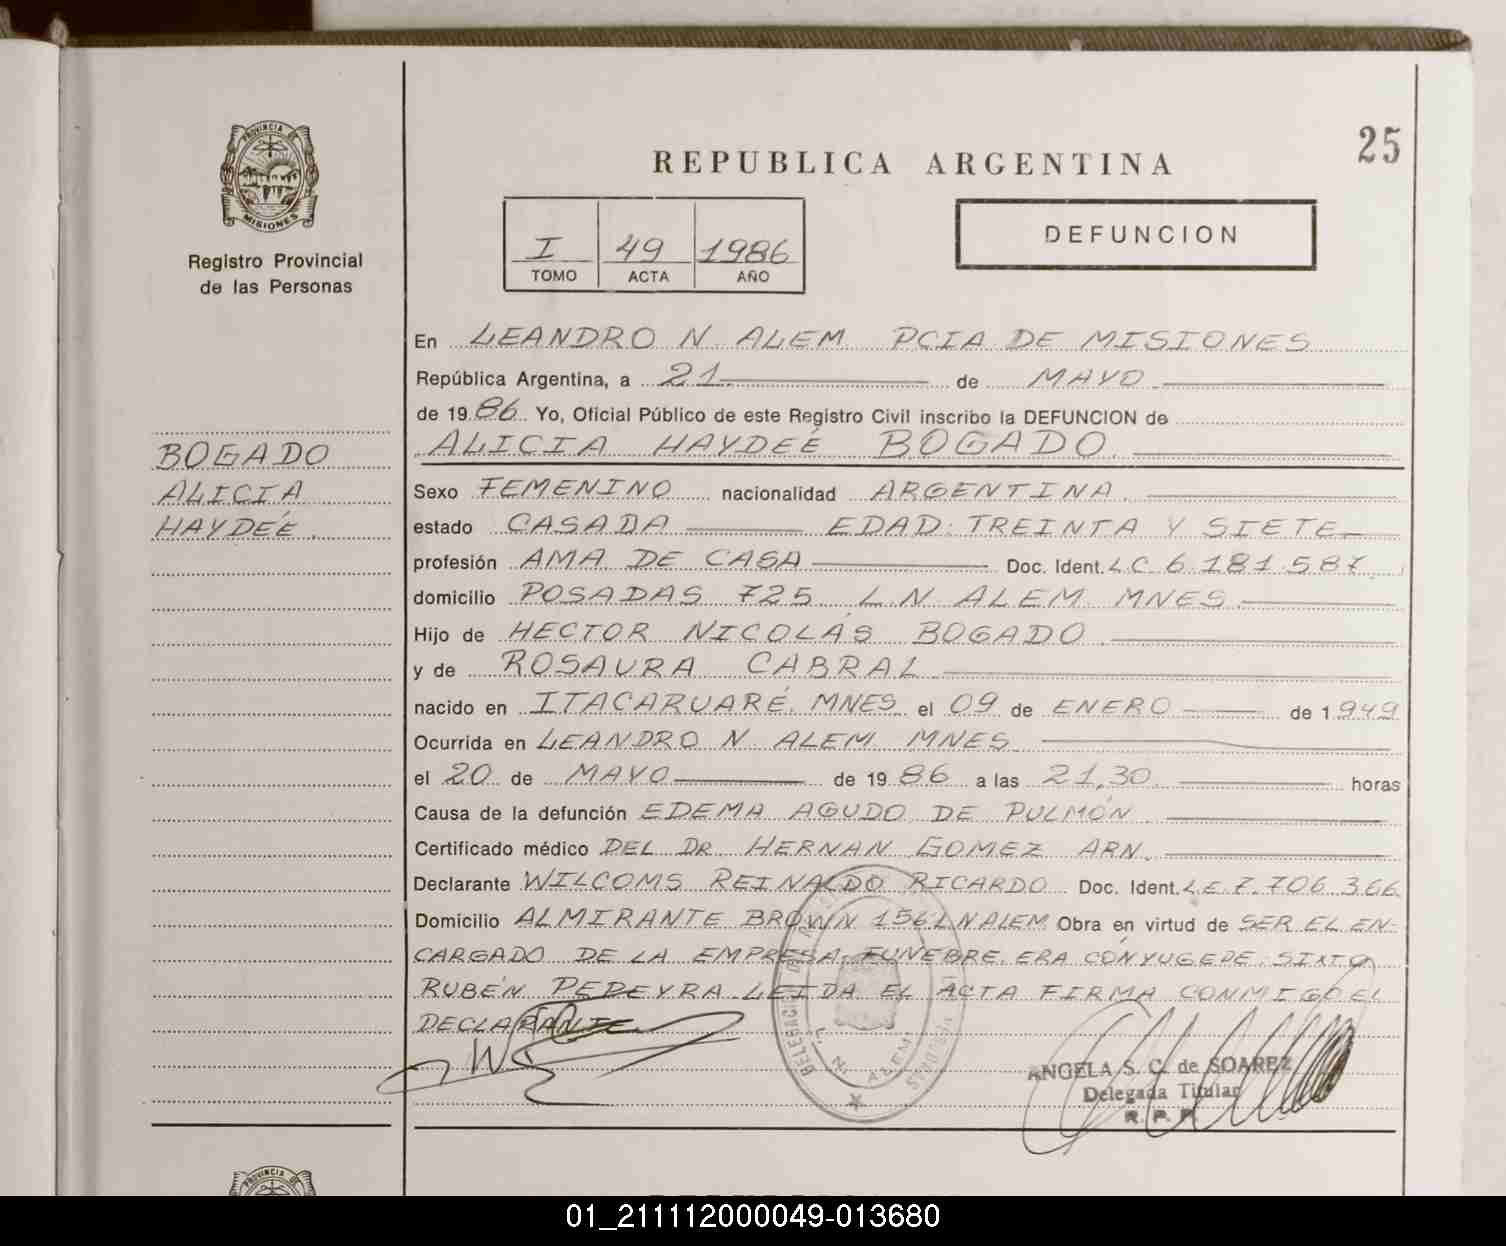 25
REPUBLICA ARGENTINA
PROVINCIA DE
MISIONES
Registro Provincial
de las Personas
I 49 1986
TOMO ACTA AÑO
DEFUNCION
BOGADO
ALICIA
HAYDEÉ.
En LEANDRO N. ALEM PCIA DE MISIONES
República Argentina, a 21 de MAYO
de 1986 Yo, Oficial Público de este Registro Civil inscribo la DEFUNCION de
ALICIA HAYDEÉ BOGADO.
Sexo FEMENINO nacionalidad ARGENTINA.
estado CASADA EDAD: TREINTA Y SIETE
profesión AMA DE CASA Doc. Ident. L.C. 6.181.587.
domicilio POSADAS 725 L.N ALEM MNES.
Hijo de HECTOR NICOLÁS BOGADO
y de ROSAURA CABRAL
nacido en ITACARUARÉ. MNES. el 09 de ENERO de 1949
Ocurrida en LEANDRO N. ALEM MNES
el 20 de MAYO de 1986 a las 21,30 horas
Causa de la defunción EDEMA AGUDO DE PULMÓN
Certificado médico DEL DR. HERNAN GOMEZ ARN.
Declarante WILCOMS REINALDO RICARDO Doc. Ident. L.E. 7.706.366
Domicilio ALMIRANTE BROWN 156 L N ALEM Obra en virtud de SER EL EN-
CARGADO DE LA EMPRESA FUNEBRE. ERA CÓNYUGE DE SIXTO
RUBÉN PEREYRA. LEIDA EL ACTA FIRMA CONMIGO EL
DECLARANTE.
L. N. ALEM
ANGELA S. C. de SOAREZ
Delegada Titular
R. P. P.
PROVINCIA DE
01_211112000049-013680